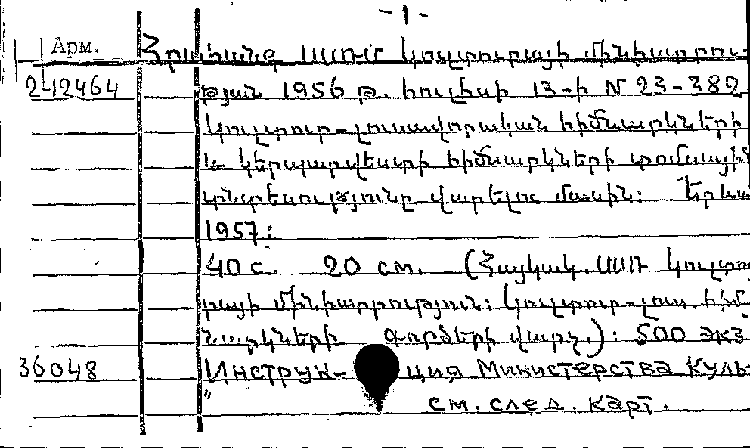 - 1 -
Арм. Հրահանգ ՍՍՌՄ կուլտուրայի մինիստրու-
242464 թյան 1956 թ. հուլիսի 13-ի N 23-382
կուլտուր-լուսավորական հիմնարկների
և կերպարվեստի հիմնարկների տոմսային
տնտեսությունը վարելու մասին: Երևան
1957:
40 с. 20 см. (Հայկակ. ՍՍՌ կուլտու
րայի մինիստրություն: Կուլտուր-լուս. հիմ
նարկների գործերի վարչ.): 500 экз
36048 Инструк- ция Министерства Куль-
см. след. карт.